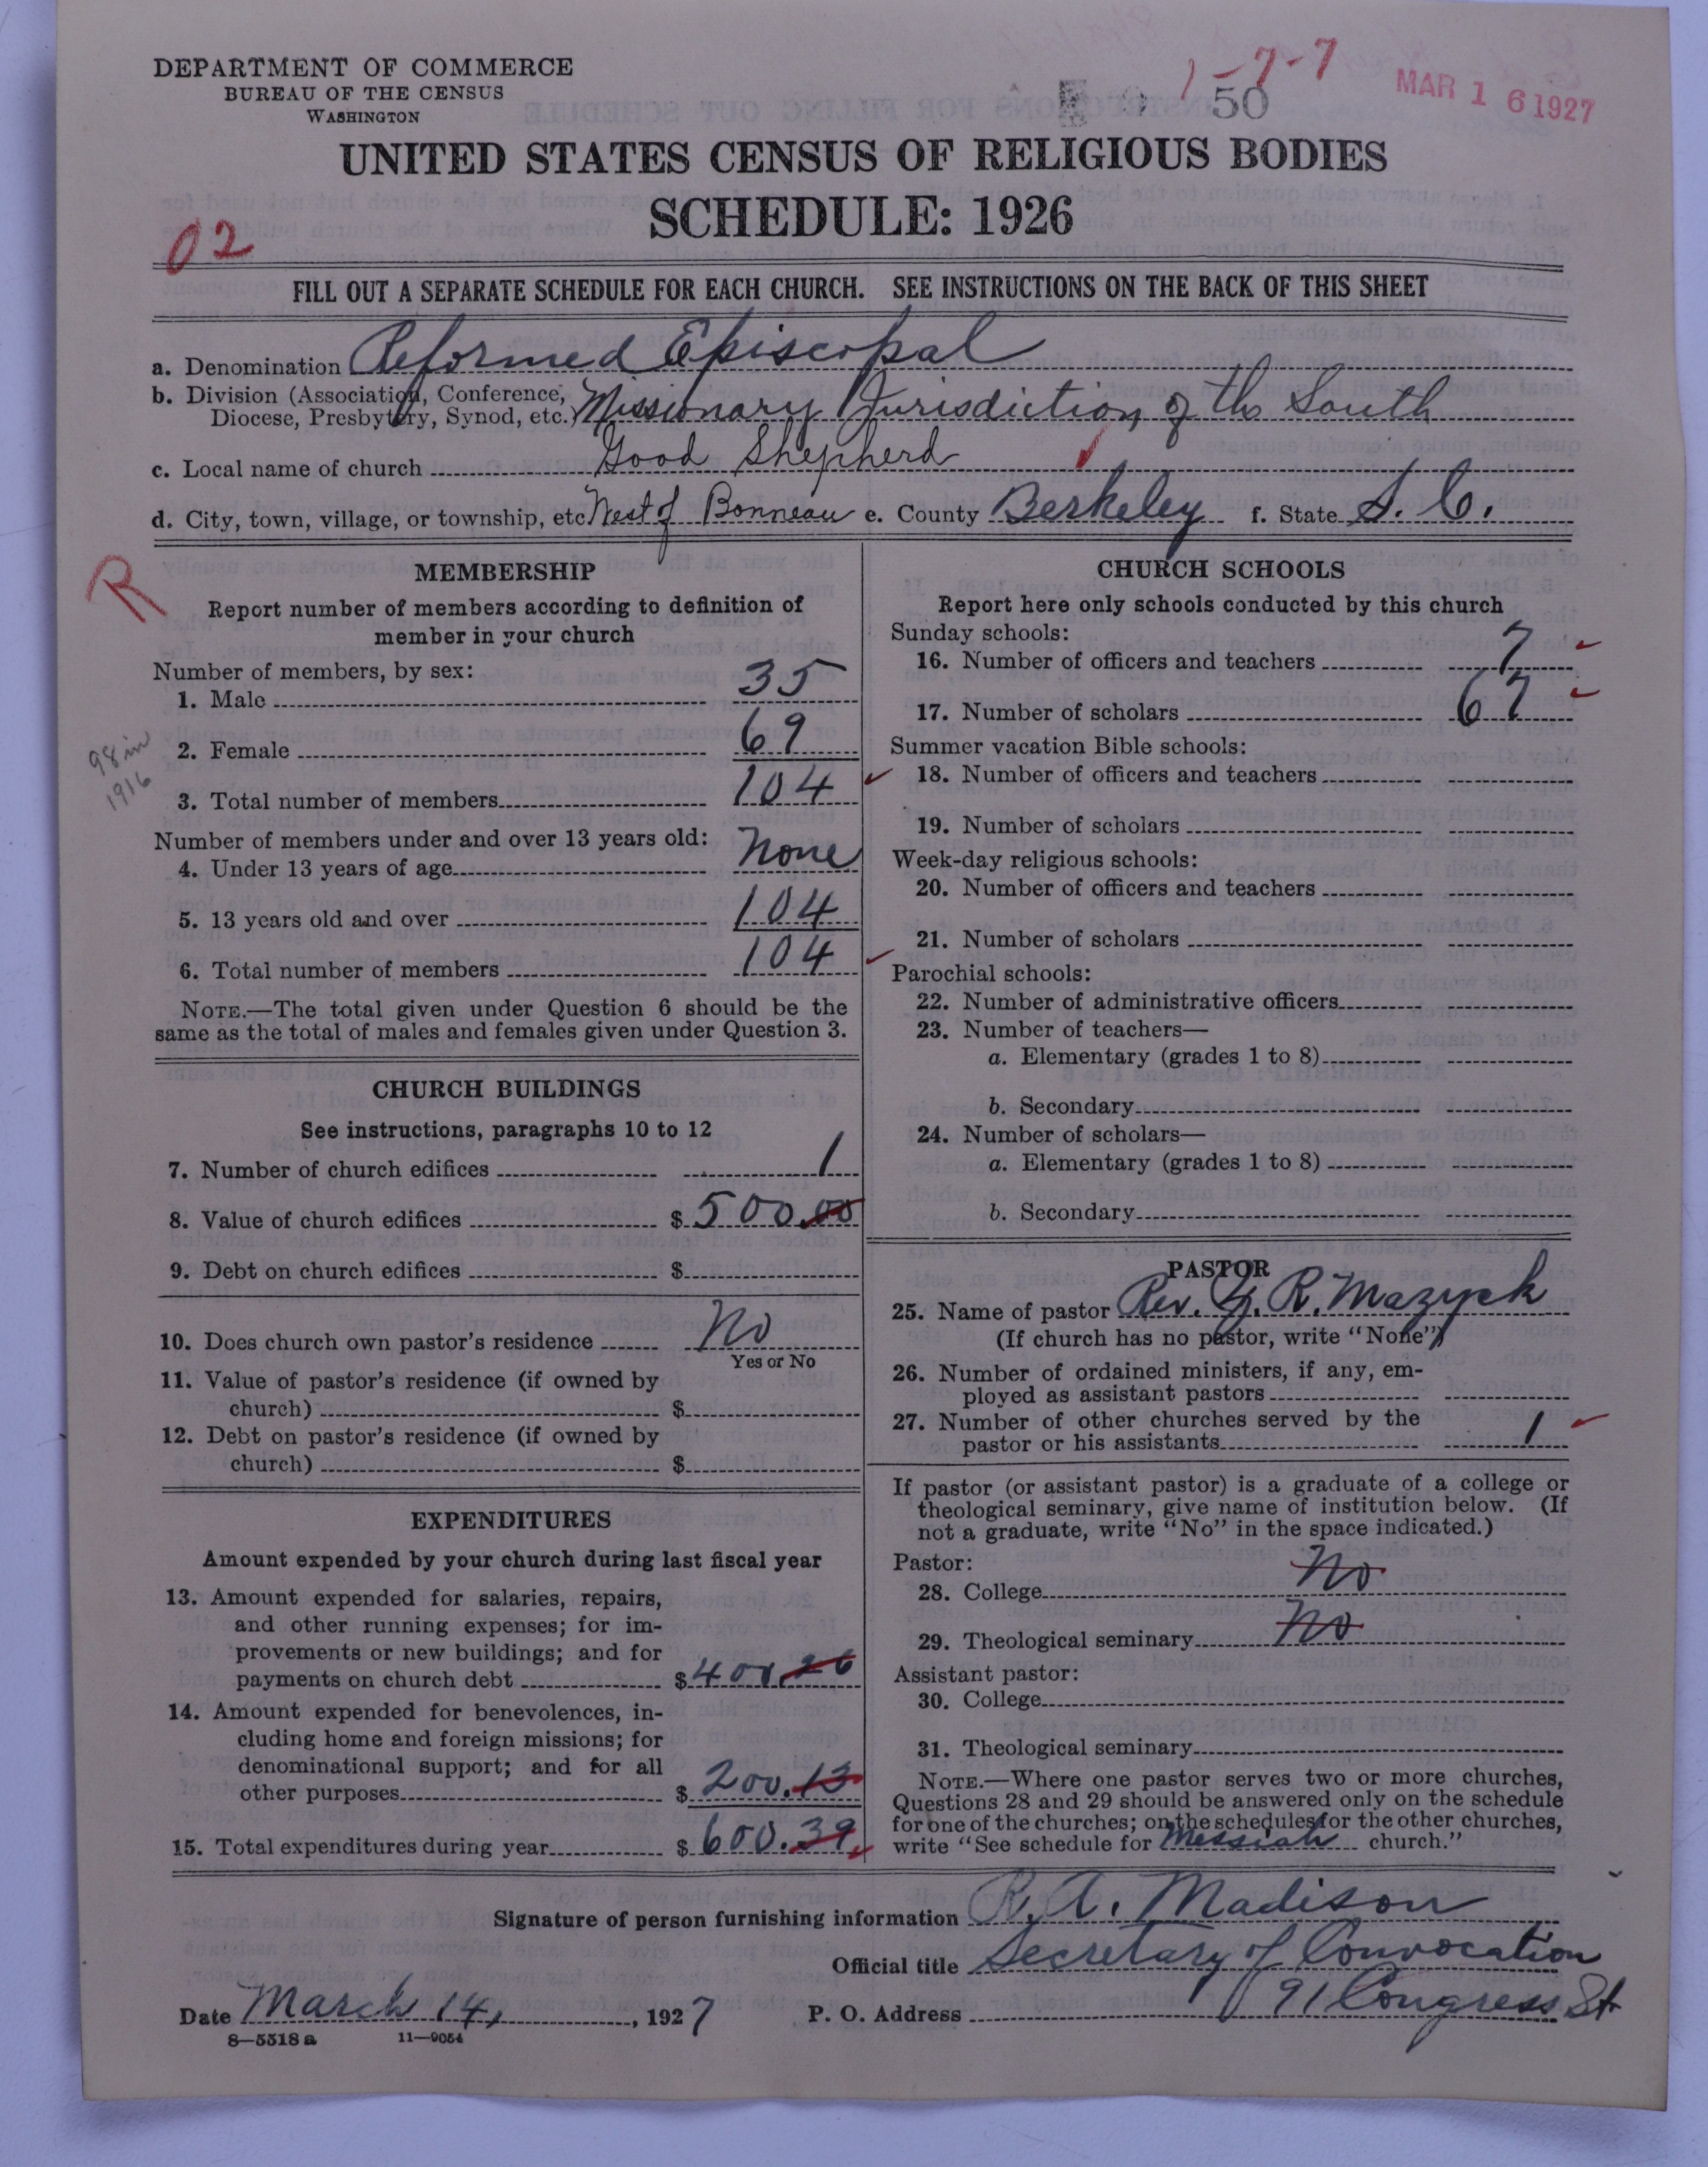 DEPARTMENT OF COMMERCE
BUREAU OF THE CENSUS
WASHINGTON
1-7-7
50
MAR 16 1927
UNITED STATES CENSUS OF RELIGIOUS BODIES
SCHEDULE: 1926
02
FILL OUT A SEPARATE SCHEDULE FOR EACH CHURCH. SEE INSTRUCTIONS ON THE BACK OF THIS SHEET
a. Denomination Reformed Episcopal
b. Division (Association, Conference, Diocese, Presbytery, Synod, etc.) Missionary Jurisdiction of the South
c. Local name of church Good Shepherd
d. City, town, village, or township, etc West of Bonneau e. County Berkeley f. State S. C.
R
MEMBERSHIP
Report number of members according to definition of
member in your church
Number of members, by sex:
1. Male 35
2. Female 69
98 in 1916
3. Total number of members 104
Number of members under and over 13 years old:
4. Under 13 years of age None
5. 13 years old and over 104
6. Total number of members 104
NOTE.—The total given under Question 6 should be the
same as the total of males and females given under Question 3.
CHURCH BUILDINGS
See instructions, paragraphs 10 to 12
7. Number of church edifices 1
8. Value of church edifices $ 500.00
9. Debt on church edifices $
10. Does church own pastor's residence No
Yes or No
11. Value of pastor's residence (if owned by
church) $
12. Debt on pastor's residence (if owned by
church) $
EXPENDITURES
Amount expended by your church during last fiscal year
13. Amount expended for salaries, repairs,
and other running expenses; for im-
provements or new buildings; and for
payments on church debt $ 400.26
14. Amount expended for benevolences, in-
cluding home and foreign missions; for
denominational support; and for all
other purposes $ 200.13
15. Total expenditures during year $ 600.39
CHURCH SCHOOLS
Report here only schools conducted by this church
Sunday schools:
16. Number of officers and teachers 7
17. Number of scholars 67
Summer vacation Bible schools:
18. Number of officers and teachers
19. Number of scholars
Week-day religious schools:
20. Number of officers and teachers
21. Number of scholars
Parochial schools:
22. Number of administrative officers
23. Number of teachers—
a. Elementary (grades 1 to 8)
b. Secondary
24. Number of scholars—
a. Elementary (grades 1 to 8)
b. Secondary
PASTOR
25. Name of pastor Rev. R. Mazyck
(If church has no pastor, write "None")
26. Number of ordained ministers, if any, em-
ployed as assistant pastors
27. Number of other churches served by the
pastor or his assistants 1
If pastor (or assistant pastor) is a graduate of a college or
theological seminary, give name of institution below. (If
not a graduate, write "No" in the space indicated.)
Pastor:
28. College No
29. Theological seminary No
Assistant pastor:
30. College
31. Theological seminary
NOTE.—Where one pastor serves two or more churches,
Questions 28 and 29 should be answered only on the schedule
for one of the churches; on the schedules for the other churches,
write "See schedule for Messiah church."
Signature of person furnishing information R. A. Madison
Official title Secretary of Convocation
Date March 14, 1927 P. O. Address 91 Congress St
8—5518 a 11—9054